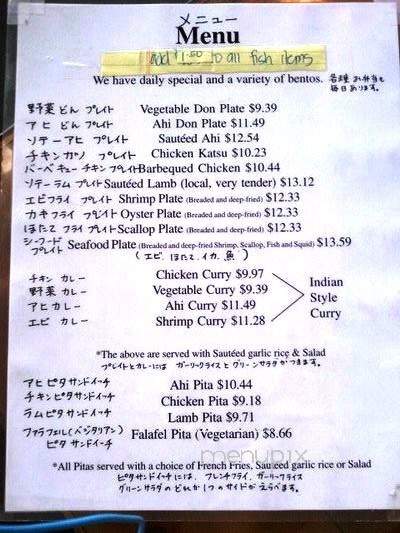 メニュー
Menu
add $1.50 to all fish items
We have daily special and a variety of bentos. 各種お弁当も
毎日あります。
野菜 どん プレイト Vegetable Don Plate $9.39
アヒ どん プレイト Ahi Don Plate $11.49
ソテーアヒ プレイト Sautéed Ahi $12.54
チキンカツ プレイト Chicken Katsu $10.23
バーベキューチキンプレイト Barbequed Chicken $10.44
ソテーラムプレイト Sautéed Lamb (local, very tender) $13.12
エビフライ プレイト Shrimp Plate (Breaded and deep-fried) $12.33
カキフライ プレイト Oyster Plate (Breaded and deep-fried) $12.33
ほたてフライプレイト Scallop Plate (Breaded and deep-fried) $12.33
シーフード
プレイト Seafood Plate (Breaded and deep-fried Shrimp, Scallop, Fish and Squid) $13.59
(エビ、ほたて、イカ、魚)
チキン カレー Chicken Curry $9.97
野菜 カレー Vegetable Curry $9.39
アヒカレー Ahi Curry $11.49
エビ カレー Shrimp Curry $11.28
Indian
Style
Curry
*The above are served with Sautéed garlic rice & Salad
プレイトとカレーには ガーリックライスとグリーンサラダがつきます。
アヒピタサンドイッチ Ahi Pita $10.44
チキンピタサンドイッチ Chicken Pita $9.18
ラムピタサンドイッチ Lamb Pita $9.71
ファラフェル(ベジタリアン)
ピタ サンドイッチ Falafel Pita (Vegetarian) $8.66
menupix
*All Pitas served with a choice of French Fries, Sauteed garlic rice or Salad
ピタサンドイッチには、フレンチフライ、ガーリックライス
グリーンサラダのどれか1つのサイドがえらべます。